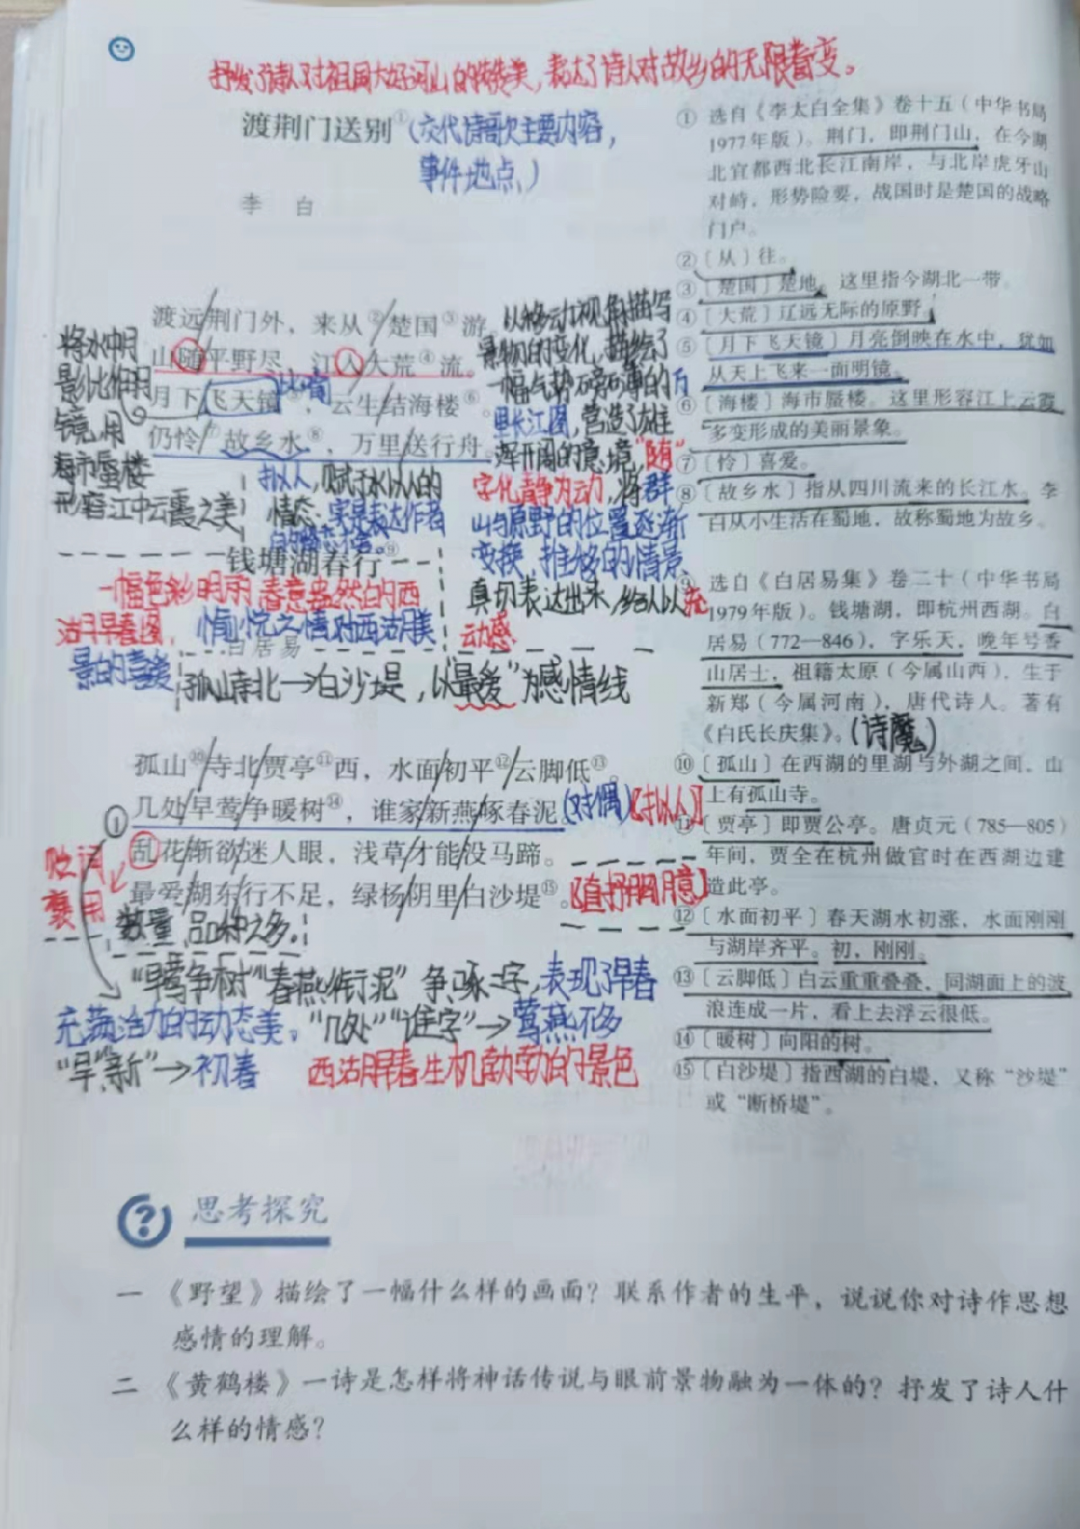 抒发了诗人对祖国大好河山的赞美，表达了诗人对故乡的无限眷恋。
渡荆门送别①（交代诗歌主要内容，
事件，地点）
李 白
渡远荆门外，来从②楚国③游。
山随平野尽，江入大荒④流。
月下飞天镜⑤，云生结海楼⑥。
仍怜⑦故乡水⑧，万里送行舟。
比喻
将水中月
影比作明
镜，用
海市蜃楼
形容江中云霞之美
以移动视角描写
景物的变化，描绘了
一幅气势磅礴的万
里长江图，营造了雄
浑开阔的意境"随"
字化静为动，将群
山与原野的位置逐渐
变换、推移的情景
真切表达出来，给人以流
动感
拟人，赋予水以人的
情态，实是表达作者
钱塘湖春行⑨
白居易
一幅色彩明丽，春意盎然的西
湖早春图，愉悦之情对西湖美
景的喜爱
孤山寺北→白沙堤，以"最爱"为感情线
孤山⑩寺北贾亭⑪西，水面初平⑫云脚低⑬。
几处早莺争暖树⑭，谁家新燕啄春泥（对偶）【拟人】
乱花渐欲迷人眼，浅草才能没马蹄。
最爱湖东行不足，绿杨阴里白沙堤⑮。【直抒胸臆】
①
贬词
褒用
数量，品种之多。
"早莺争树""春燕衔泥"争、啄二字，表现了早春
充满活力的动态美。"几处""谁家"→莺燕不多
"早""新"→初春 西湖早春生机勃勃的景色
① 选自《李太白全集》卷十五（中华书局
1977年版）。荆门，即荆门山，在今湖
北宜都西北长江南岸，与北岸虎牙山
对峙，形势险要，战国时是楚国的战略
门户。
②〔从〕往。
③〔楚国〕楚地。这里指今湖北一带。
④〔大荒〕辽远无际的原野。
⑤〔月下飞天镜〕月亮倒映在水中，犹如
从天上飞来一面明镜。
⑥〔海楼〕海市蜃楼。这里形容江上云霞
多变形成的美丽景象。
⑦〔怜〕喜爱。
⑧〔故乡水〕指从四川流来的长江水。李
白从小生活在蜀地，故称蜀地为故乡。
⑨ 选自《白居易集》卷二十（中华书局
1979年版）。钱塘湖，即杭州西湖。白
居易（772—846），字乐天，晚年号香
山居士，祖籍太原（今属山西），生于
新郑（今属河南），唐代诗人。著有
《白氏长庆集》。（诗魔）
⑩〔孤山〕在西湖的里湖与外湖之间，山
上有孤山寺。
⑪〔贾亭〕即贾公亭。唐贞元（785—805）
年间，贾全在杭州做官时在西湖边建
造此亭。
⑫〔水面初平〕春天湖水初涨，水面刚刚
与湖岸齐平。初，刚刚。
⑬〔云脚低〕白云重重叠叠，同湖面上的波
浪连成一片，看上去浮云很低。
⑭〔暖树〕向阳的树。
⑮〔白沙堤〕指西湖的白堤，又称"沙堤"
或"断桥堤"。
思考探究
一 《野望》描绘了一幅什么样的画面？联系作者的生平，说说你对诗作思想
感情的理解。
二 《黄鹤楼》一诗是怎样将神话传说与眼前景物融为一体的？抒发了诗人什
么样的情感？